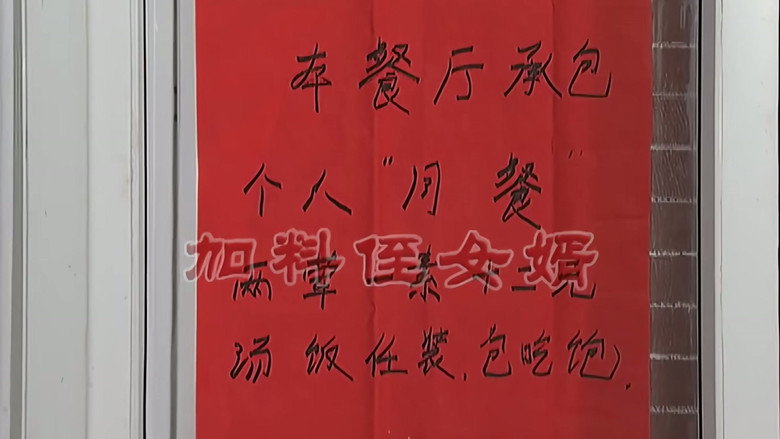 本餐厅承包
个人“月餐”
加料侄女婿
两荤一素十二元
汤饭任装,包吃饱,